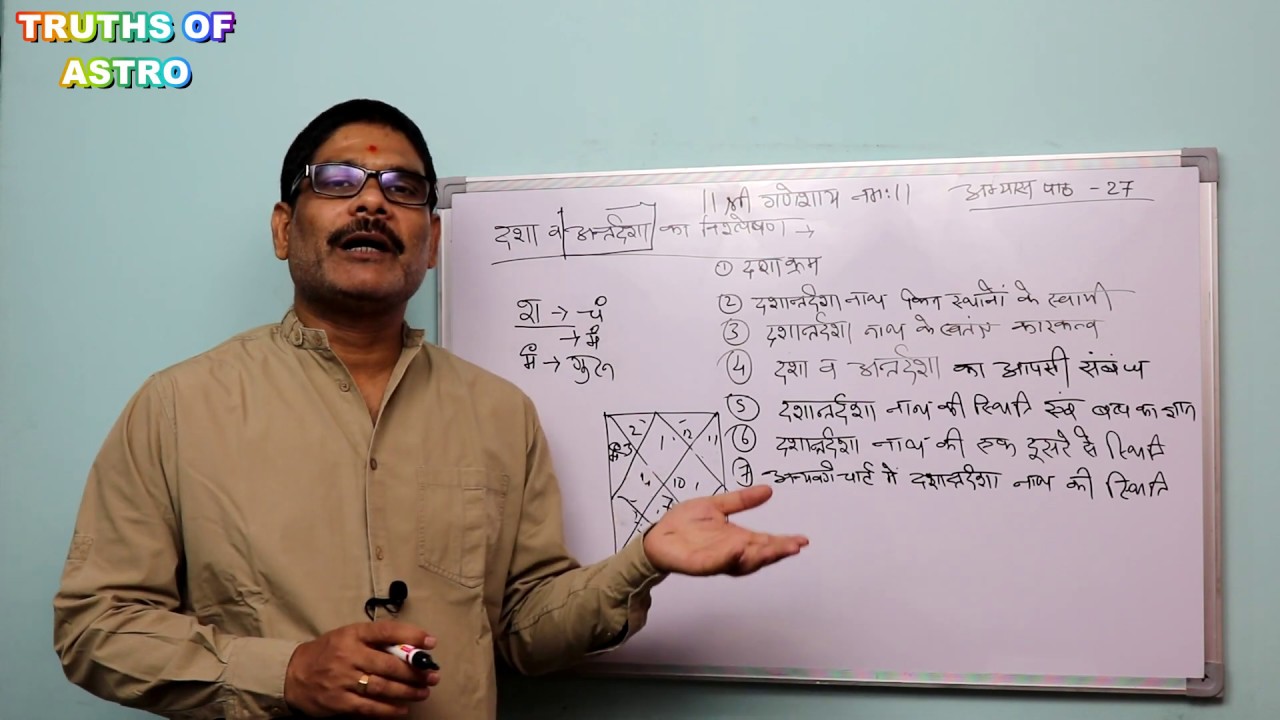 TRUTHS OF
ASTRO
|| श्री गणेशाय नमः ||
अभ्यास पाठ - 27
दशा व अन्तर्दशा का विश्लेषण →
① दशाक्रम
② दशान्तर्दशा नाथ किन स्थानों के स्वामी
③ दशान्तर्दशा नाथ के स्वतंत्र कारकत्व
④ दशा व अन्तर्दशा का आपसी संबंध
⑤ दशान्तर्दशा नाथ की स्थिति एवं बल का ज्ञान
⑥ दशान्तर्दशा नाथ की एक दूसरे से स्थिति
⑦ चार्ट में दशान्तर्दशा नाथ की स्थिति
श → चं
→ मं
मं → गुरु
2
1
12
11
3
4
10
7